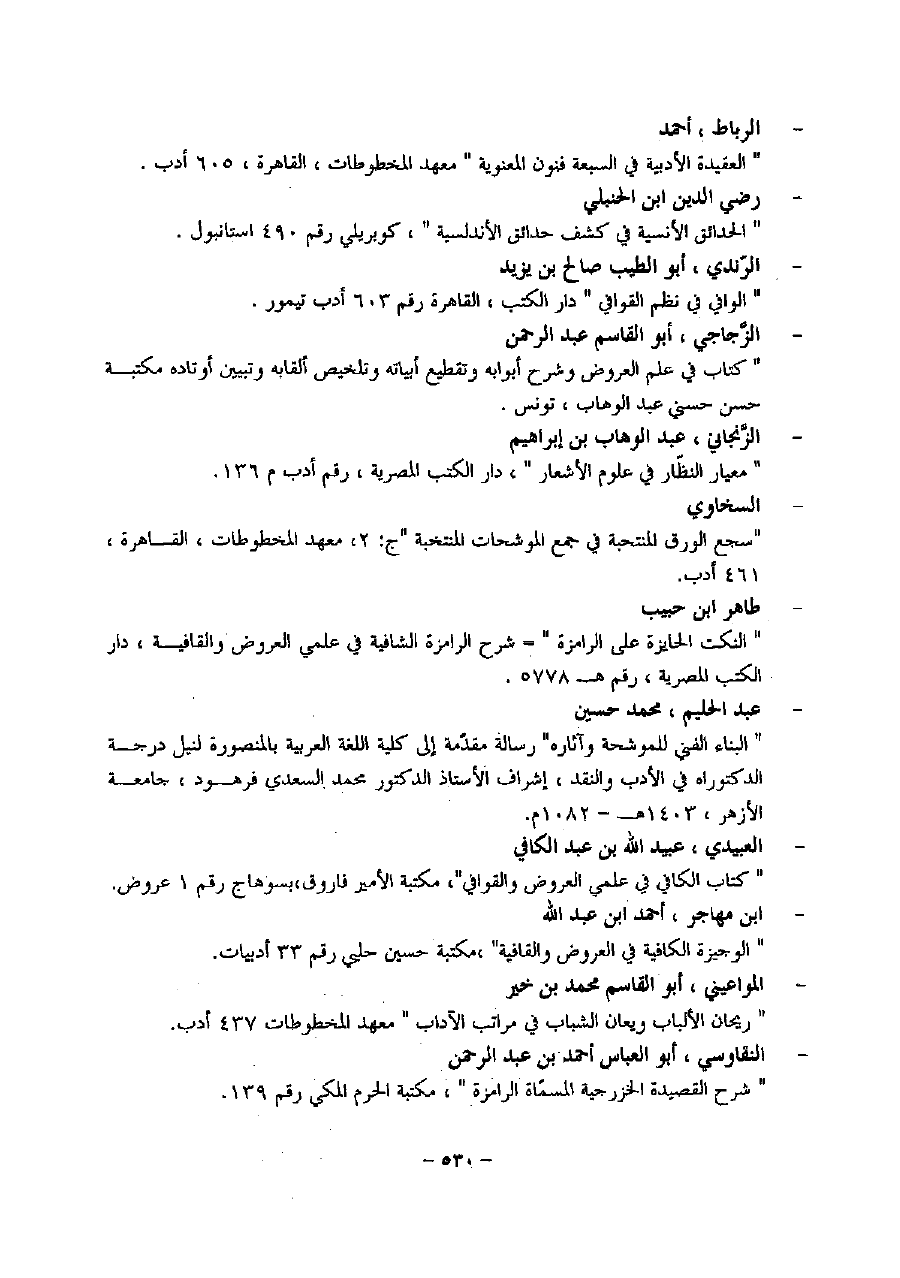 - الرباط ، أحمد
" العقيدة الأدبية في السبعة فنون المعنوية " معهد المخطوطات ، القاهرة ، ٦٠٥ أدب .
- رضي الدين ابن الحنبلي
" الحدائق الأنسية في كشف حدائق الأندلسية " ، كوبريلي رقم ٤٩٠ استانبول .
- الرّندي ، أبو الطيب صالح بن يزيد
" الوافي في نظم القوافي " دار الكتب ، القاهرة رقم ٦٠٣ أدب تيمور .
- الزَّجاجي ، أبو القاسم عبد الرحمن
" كتاب في علم العروض وشرح أبوابه وتقطيع أبياته وتلخيص ألقابه وتبيين أوتاده مكتبـــة
حسن حسني عبد الوهاب ، تونس .
- الزَّنجاني ، عبد الوهاب بن إبراهيم
" معيار النظّار في علوم الأشعار " ، دار الكتب المصرية ، رقم أدب م ١٣٦.
- السخاوي
"سجع الورق المنتحبة في جمع الموشحات المنتخبة "ج: ٢، معهد المخطوطات ، القـــاهرة ،
٤٦١ أدب.
- طاهر ابن حبيب
" النكت الحايزة على الرامزة " = شرح الرامزة الشافية في علمي العروض والقافيـــة ، دار
الكتب المصرية ، رقم هــ ٥٧٧٨ .
- عبد الحليم ، محمد حسين
" البناء الفني للموشحة وآثاره" رسالة مقدّمة إلى كلية اللغة العربية بالمنصورة لنيل درجـــة
الدكتوراه في الأدب والنقد ، إشراف الأستاذ الدكتور محمد السعدي فرهـــود ، جامعـــة
الأزهر ، ١٤٠٣هـــ - ١٠٨٢م.
- العبيدي ، عبيد الله بن عبد الكافي
" كتاب الكافي في علمي العروض والقوافي"، مكتبة الأمير فاروق،بسوهاج رقم ١ عروض.
- ابن مهاجر ، أحمد ابن عبد الله
" الوجيزة الكافية في العروض والقافية" ،مكتبة حسين حلبي رقم ٣٣ أدبيات.
- المواعيني ، أبو القاسم محمد بن خير
" ريحان الألباب ويعان الشباب في مراتب الآداب " معهد المخطوطات ٤٣٧ أدب.
- النقاوسي ، أبو العباس أحمد بن عبد الرحمن
" شرح القصيدة الخزرجية المسمّاة الرامزة " ، مكتبة الحرم المكي رقم ١٣٩.
- ٥٣٠ -